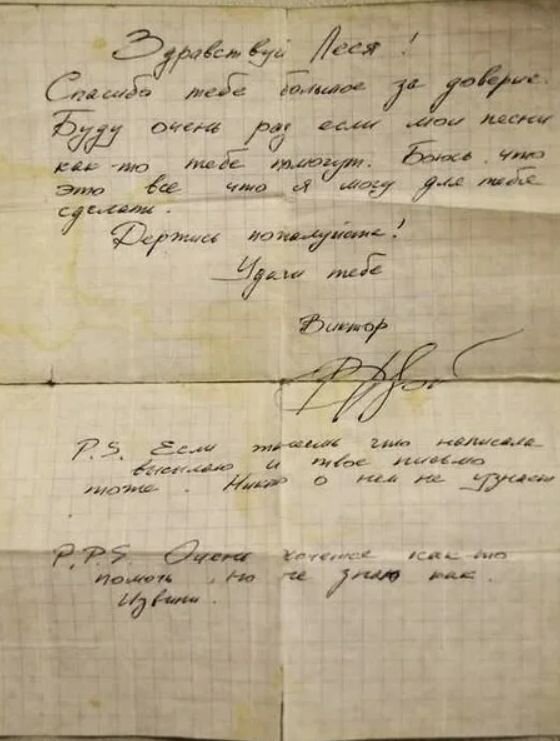 Здравствуй Леся!
Спасибо тебе большое за доверие.
Буду очень рад если мои песни
как-то тебе помогут. Боюсь что
это все что я могу для тебя
сделать.
Держись пожалуйста!
Удачи тебе
Виктор
P.S. Если жалеешь что написала
высылаю и твое письмо
тоже. Никто о нем не узнает
P.P.S. Очень хочется как-то
помочь, но не знаю как.
Извини.